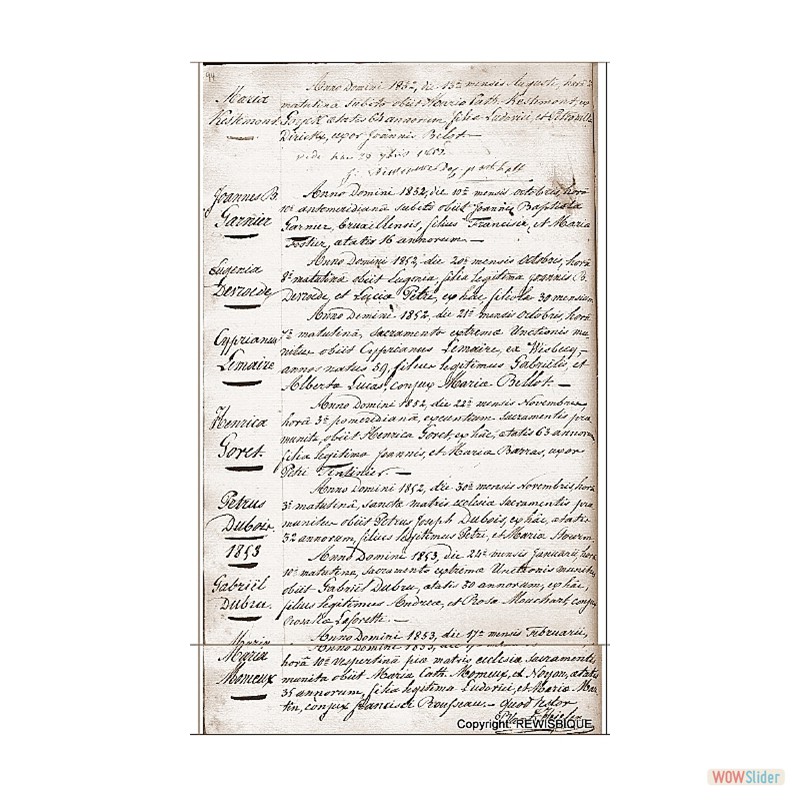 94
Maria
Kestemont
Anno Domini 1852, die 13ª mensis Augusti, horâ
matutinâ subito obiit Maria Cath. Kestemont, ex
ætatis 64 annorum, filia Ludovici, et Petronillæ
Dirickx, uxor Joannis Belot. —
Joannes B.
Garnier
Anno Domini 1852, die 10ª mensis octobris, horâ
10ª antemeridianâ subito obiit Joannes Baptista
Garnier, bruxellensis, filius Francisci, et Maria
Fostier, ætatis 16 annorum. —
Eugenia
Derroede
Anno Domini 1852, die 20ª mensis octobris, horâ
8ª matutinâ obiit Eugenia, filia legitima Joannis B.
Derroede, et Lucia Petre, ex hâc, filiola 30 mensium.
Cyprianus
Lemaire
Anno Domini 1852, die 21ª mensis octobris, horâ
7ª matutinâ, Sacramento extremæ Unctionis mu-
nitus obiit Cyprianus Lemaire, ex Wisbecq,
annos natus 59, filius legitimus Gabrielis, et
Alberta Lucas, conjux Maria Bellot. —
Henrica
Goret
Anno Domini 1852, die 22ª mensis Novembris,
horâ 3ª pomeridianâ, Sacramentis præ
munita, obiit Henrica Goret, ex hâc, ætatis 63 annorum
filia legitima Joannis, et Maria Barras, uxor
Petri Tintinier. —
Petrus
Dubois.
Anno Domini 1852, die 30ª mensis Novembris, horâ
3ª matutinâ, sanctæ matris ecclesiæ Sacramentis præ
munitus obiit Petrus Joseph Dubois, ex hâc, ætatis
32 annorum, filius legitimus Petri, et Maria
1853
Gabriël
Dubru.
Anno Domini 1853, die 24ª mensis Januarii, horâ
10ª matutinâ, Sacramento extremæ Unctionis munitus
obiit Gabriël Dubru, ætatis 30 annorum, ex hâc,
filius legitimus Andreæ, et Rosa Mouchart, conjux
Rosalia Laforette. —
Maria
Anno Domini 1853, die 17ª mensis Februarii,
Maria
Momeux
horâ 10ª Vespertinâ piæ matris ecclesiæ Sacramentis
munita obiit Maria Cath. Momeux, ex Noyon, ætatis
35 annorum, filia legitima Ludovici, et Maria Mar-
tin, conjux Francisci Rousseau. — quod testor
Copyright: REWISBIQUE
WOWSlider